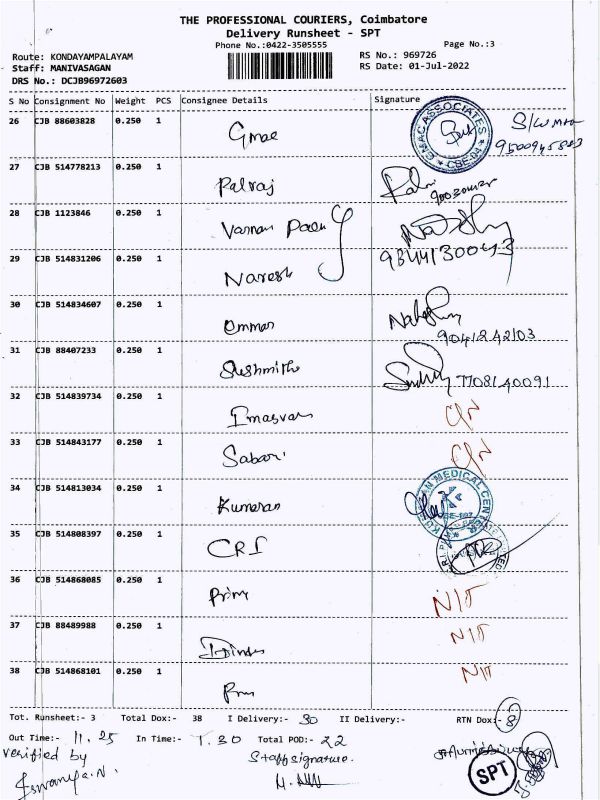 THE PROFESSIONAL COURIERS, Coimbatore
Delivery Runsheet - SPT
Phone No.:0422-3505555 Page No.:3
Route: KONDAYAMPALAYAM RS No.: 969726
Staff: MANIVASAGAN RS Date: 01-Jul-2022
DRS No.: DCJB96972603
S No Consignment No Weight PCS Consignee Details Signature
26 CJB 88603828 0.250 1 CMAC ASSOCIATES CBE-04
27 CJB 514778213 0.250 1 Palraj
28 CJB 1123846 0.250 1
29 CJB 514831206 0.250 1 Naresh
30 CJB 514834607 0.250 1 Omman 9041242103
31 CJB 88407233 0.250 1 Sushmitha 7708140091
32 CJB 514839734 0.250 1
33 CJB 514843177 0.250 1 Sabari
34 CJB 514813034 0.250 1 Kumaran MEDICAL CENTER
35 CJB 514808397 0.250 1 CRI
36 CJB 514868085 0.250 1 N/T
37 CJB 88489988 0.250 1 N/T
38 CJB 514868101 0.250 1 N/T
Tot. Runsheet:- 3 Total Dox:- 38 I Delivery:- 30 II Delivery:- RTN Dox:- 8
Out Time:- 11.25 In Time:- 7.30 Total POD:- 22
verified by Staff signature.
SPT